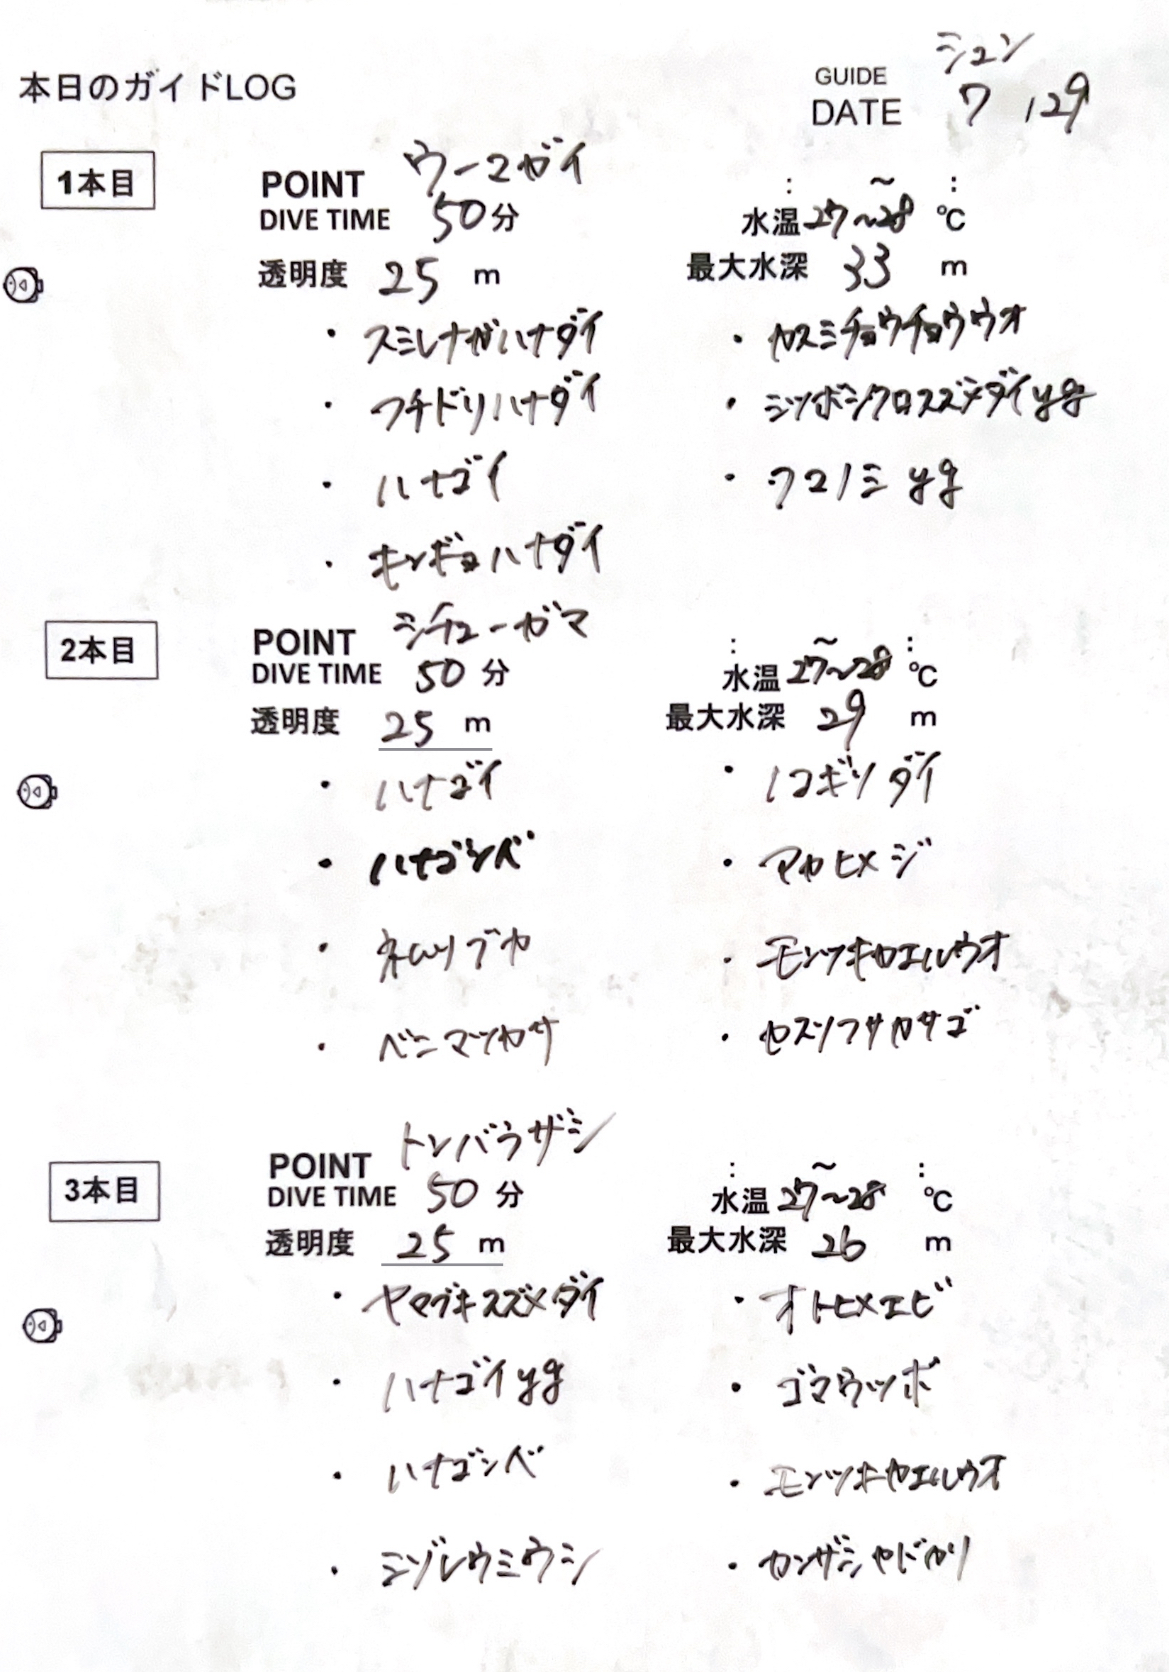 本日のガイドLOG
GUIDE シュン
DATE 7/29
1本目
POINT ウーマガイ
: ～ :
DIVE TIME 50分
水温 27～28 ℃
透明度 25 m
最大水深 33 m
・スミレナガハナダイ
・カスミチョウチョウウオ
・フチドリハナダイ
・ミツボシクロスズメダイyg
・ハナゴイ
・クマノミyg
・キンギョハナダイ
2本目
POINT シチューガマ
: ～ :
DIVE TIME 50 分
水温 27～28 ℃
透明度 25 m
最大水深 29 m
・ハナゴイ
・ノコギリダイ
・ハナゴンベ
・アカヒメジ
・ネムリブカ
・モンツキカエルウオ
・ベニマツカサ
・セスジフサカサゴ
3本目
POINT トンバラザシ
: ～ :
DIVE TIME 50 分
水温 27～28 ℃
透明度 25 m
最大水深 26 m
・ヤマブキスズメダイ
・オトヒメエビ
・ハナゴイyg
・ゴマウツボ
・ハナゴンベ
・モンツキカエルウオ
・ミゾレウミウシ
・カンザシヤドカリ